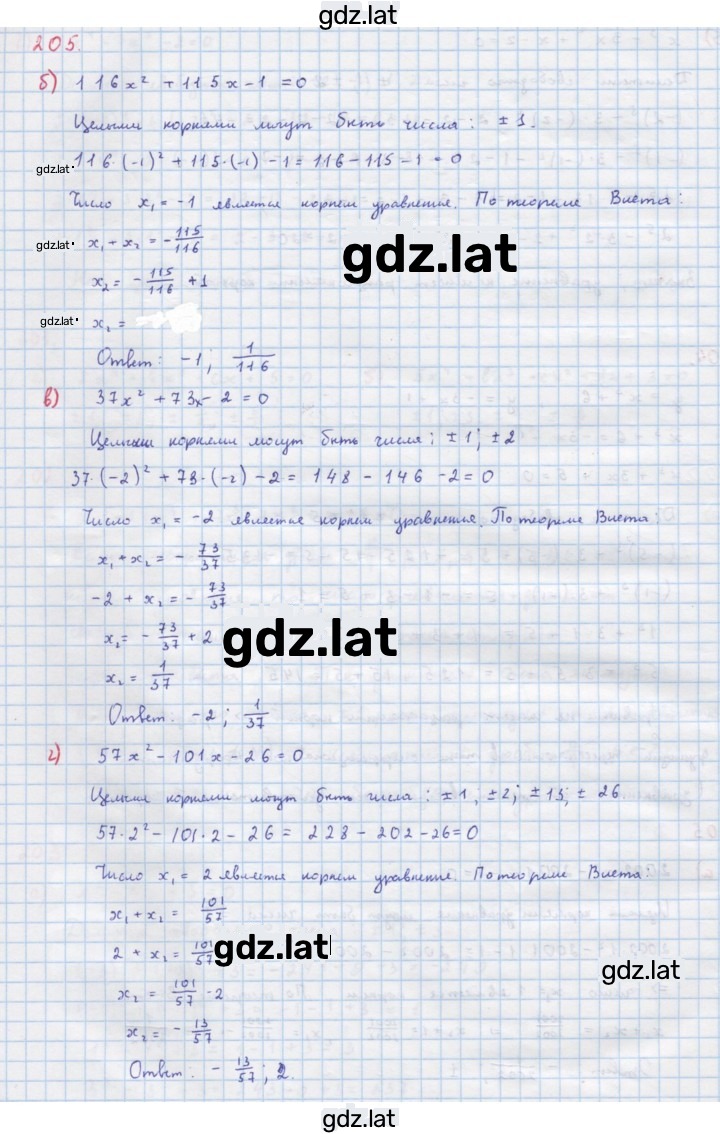 gdz.lat
205.
б) 116x² + 115x - 1 = 0
Целыми корнями могут быть числа: ± 1.
gdz.lat 116·(-1)² + 115·(-1) - 1 = 116 - 115 - 1 = 0
Число x₁ = -1 является корнем уравнения. По теореме Виета:
gdz.lat x₁ + x₂ = -115/116
gdz.lat
x₂ = -115/116 + 1
gdz.lat x₂ =
Ответ: -1; 1/116
в) 37x² + 73x - 2 = 0
Целыми корнями могут быть числа: ±1; ±2
37·(-2)² + 73·(-2) - 2 = 148 - 146 - 2 = 0
Число x₁ = -2 является корнем уравнения. По теореме Виета:
x₁ + x₂ = - 73/37
-2 + x₂ = - 73/37
x₂ = - 73/37 + 2
gdz.lat
x₂ = 1/37
Ответ. -2; 1/37
г) 57x² - 101x - 26 = 0
Целыми корнями могут быть числа: ±1; ±2; ±13; ± 26.
57·2² - 101·2 - 26 = 228 - 202 - 26 = 0
Число x₁ = 2 является корнем уравнения. По теореме Виета:
x₁ + x₂ = 101/57
2 + x₂ = 101/57
gdz.lat
gdz.lat
x₂ = 101/57 - 2
x₂ = - 13/57
Ответ. - 13/57; 2.
gdz.lat